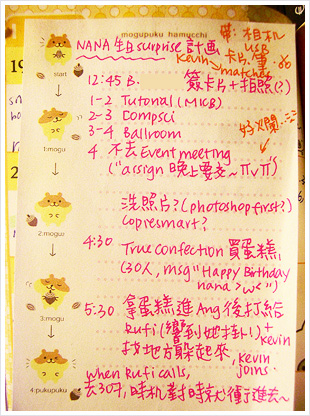 mogupuku hamucchi
NANA 生日 surprise 計画
帶:相機
USB
卡片
Kevin→ matches
start
12:45 B. 簽卡片+拍照(?)
1-2 Tutorial (MICB)
2-3 Compsci
3-4 Ballroom
好爛
1:mogu
4 不去 Event meeting
("assign 晚上要交~ πvπ")
洗照片?(photoshop first?)
Copiesmart?
2:mogu
4:30 True confection 買蛋糕
(30人, msg "Happy Birthday
nana >w<")
3:mogu
5:30 拿蛋糕進 Ang 後打給
Rufi (響到她掛!)+
Kevin
找地方躲起來,
kevin
joins.
when Rufi calls,
4:pukupuku
去307, 時机對時就衝進去~
19